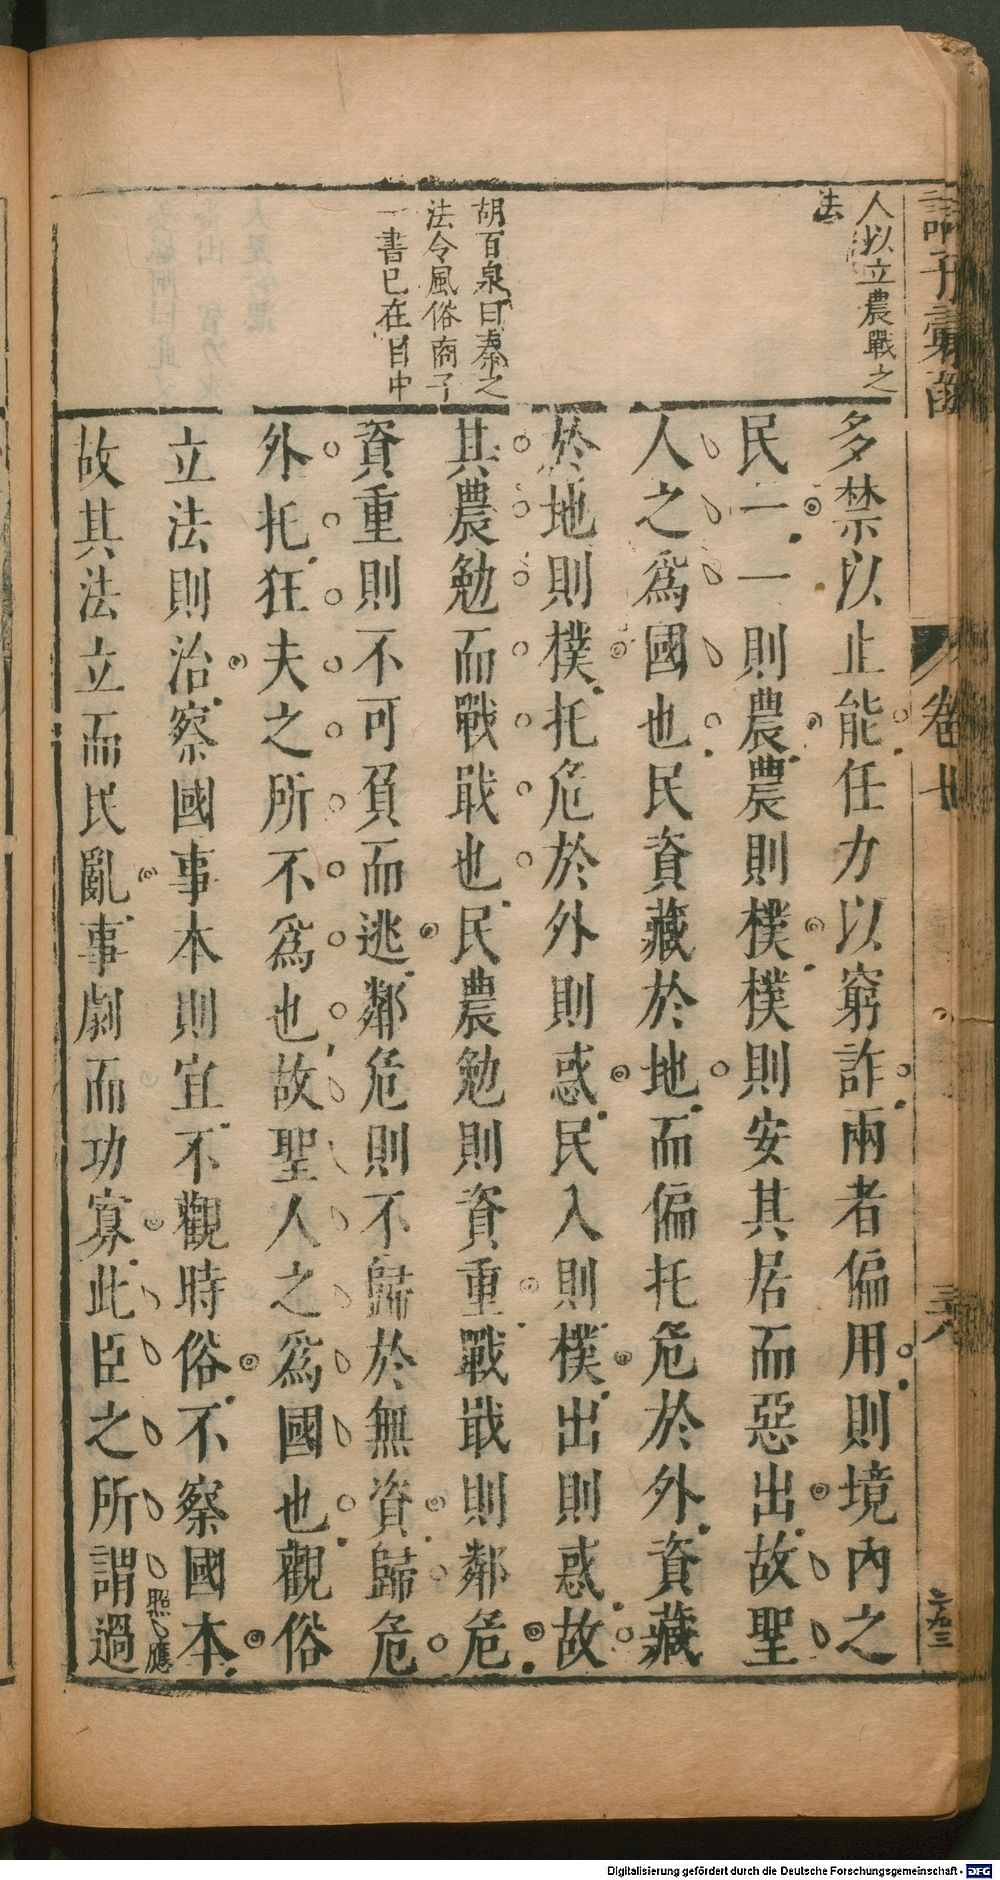 人以立農戰之
法
胡百泉曰秦之
法令風俗商子
一書已在目中
多禁以止能任力以窮詐兩者偏用則境內之
民一一則農農則樸樸則安其居而惡出故聖
人之爲國也民資藏於地而偏托危於外資藏
於地則樸托危於外則惑民入則樸出則惑故
其農勉而戰戢也民農勉則資重戰戢則鄰危
資重則不可負而逃鄰危則不歸於無資歸危
外托狂夫之所不爲也故聖人之爲國也觀俗
立法則治察國事本則宜不觀時俗不察國本
故其法立而民亂事劇而功寡此臣之所謂過
照應
卷十
三八
二九三
Digitalisierung gefördert durch die Deutsche Forschungsgemeinschaft - DFG